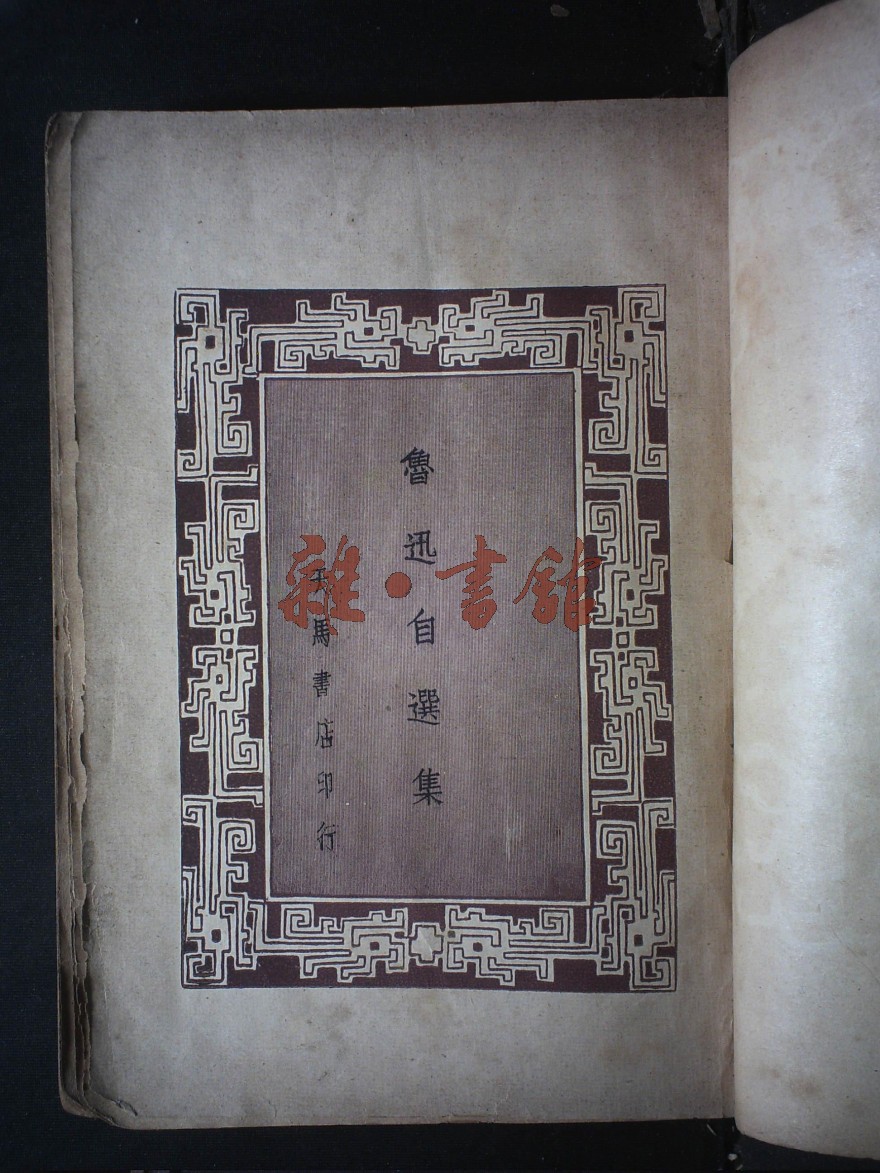 魯迅自選集
天馬書店印行
雜·書館